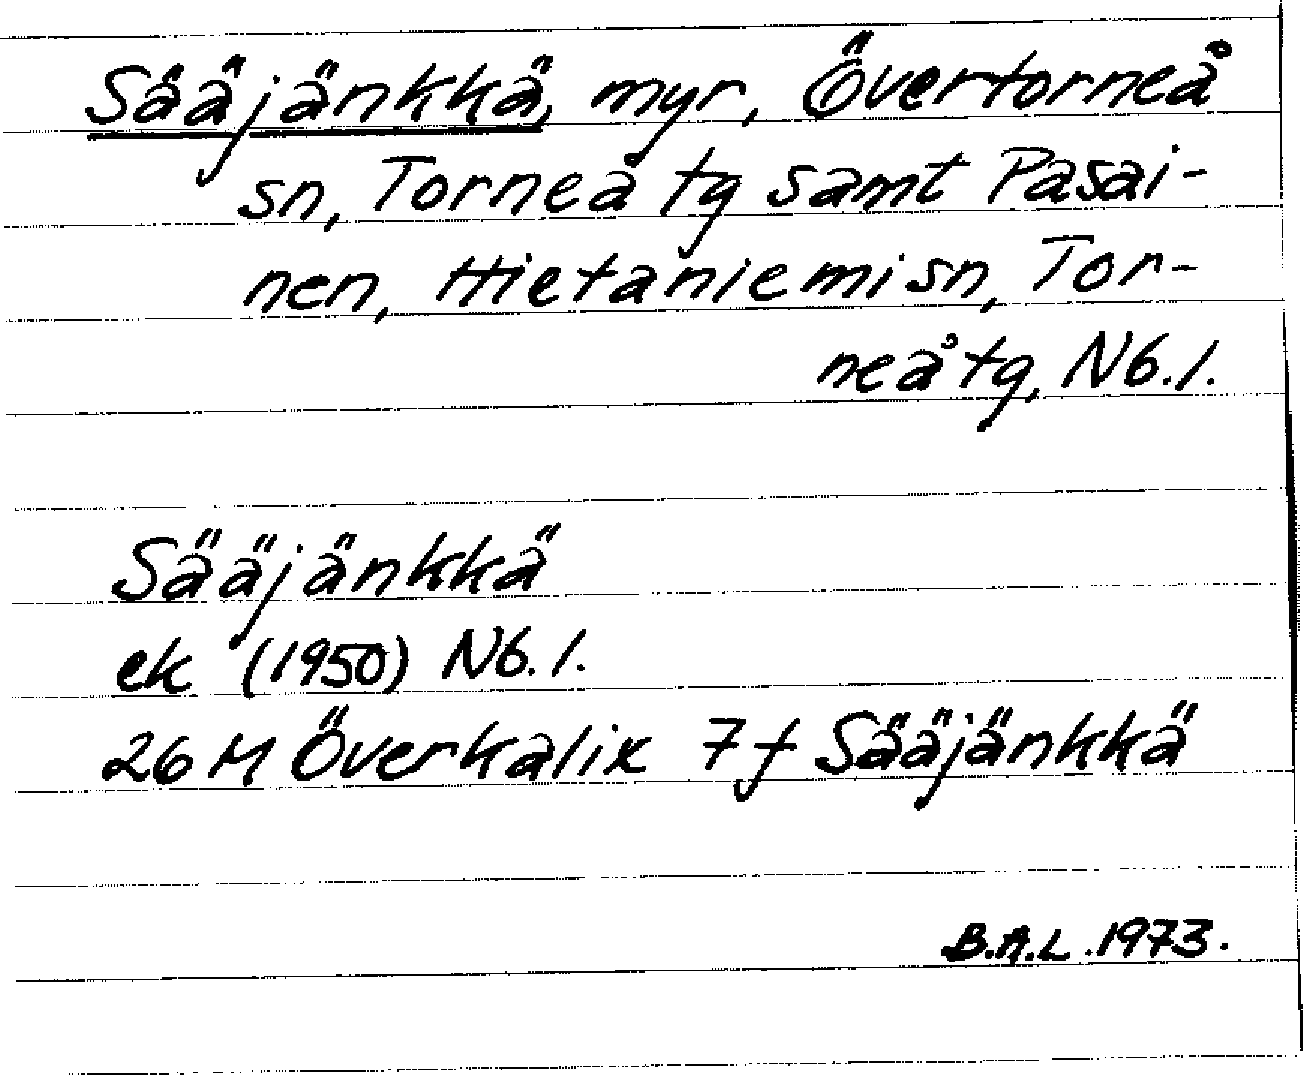 Sääjänkkä, myr, Övertorneå
sn, Torneå tg samt Pasai-
nen, Hietaniemi sn, Tor-
neå tg, N6.1.
Sääjänkkä
ek (1950) N6.1.
26 M Överkalix 7 f Sääjänkkä
B.A.L. 1973.